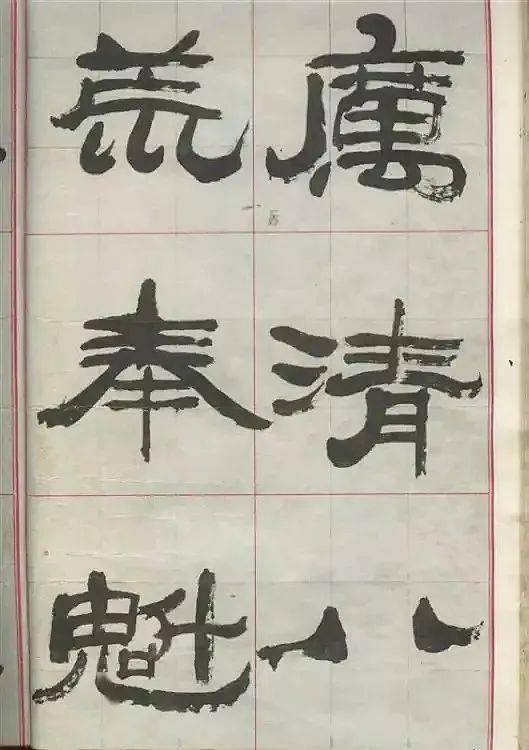 厲清八
荒奉魁